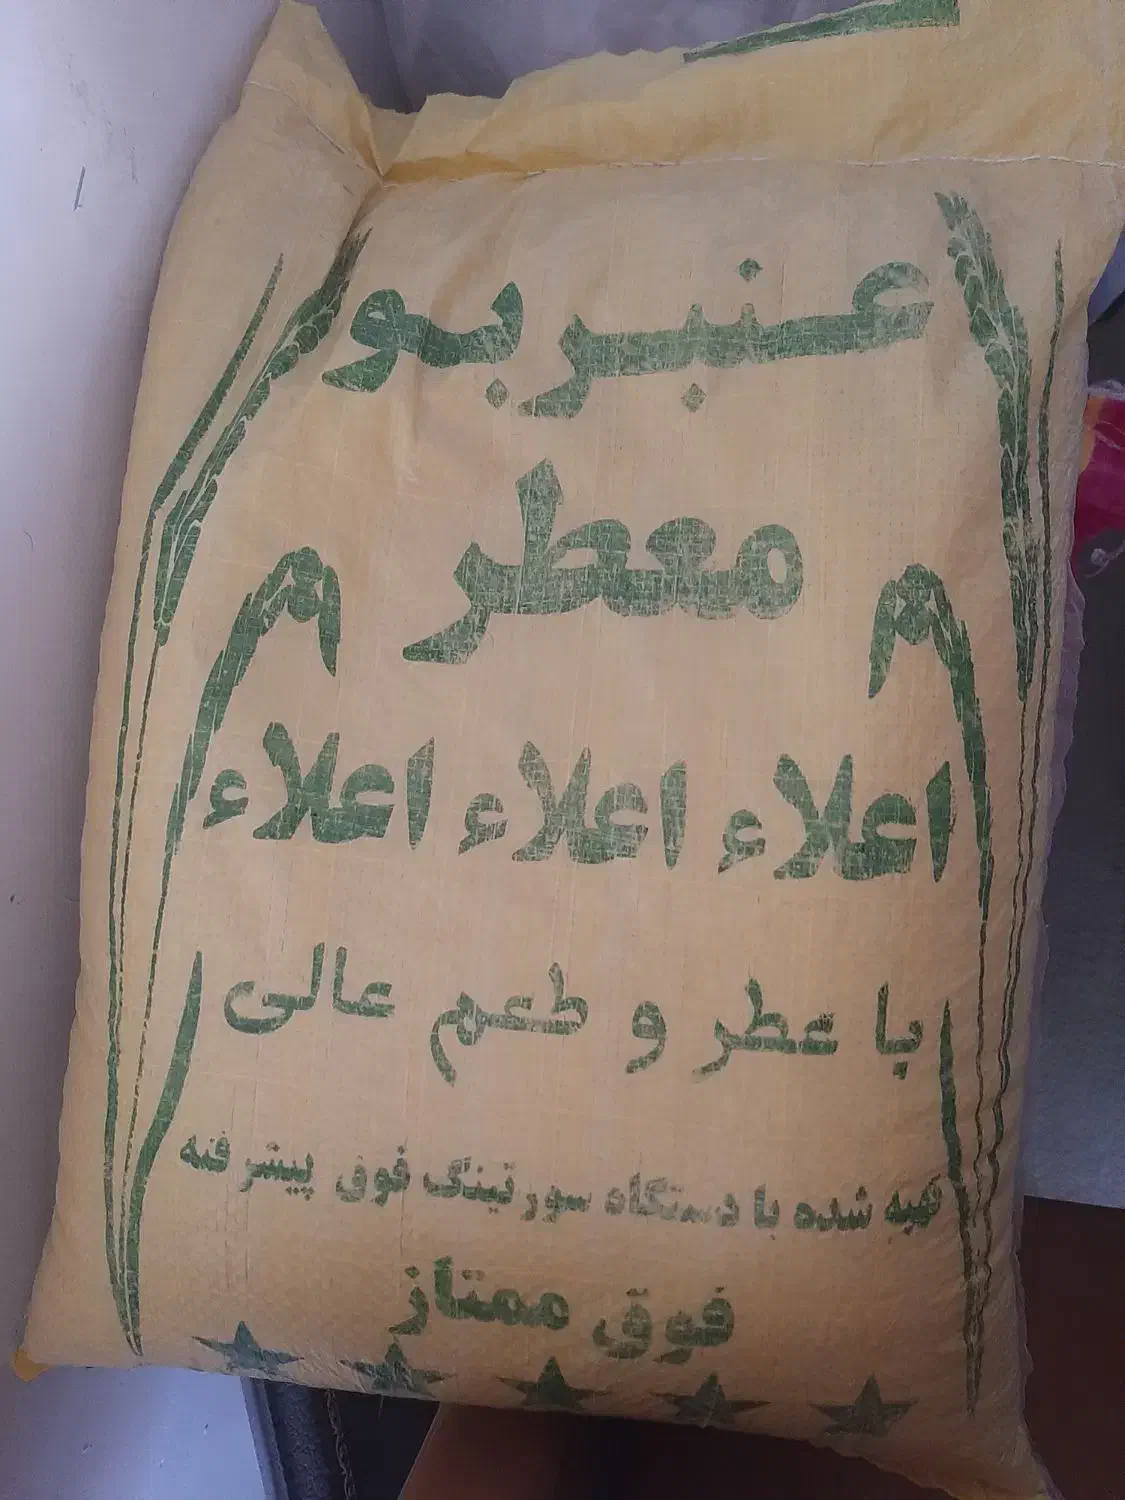 عنبربو
معطر
اعلاء اعلاء اعلاء
با عطر و طعم عالی
تهیه شده با دستگاه سورتینگ فوق پیشرفته
فوق ممتاز